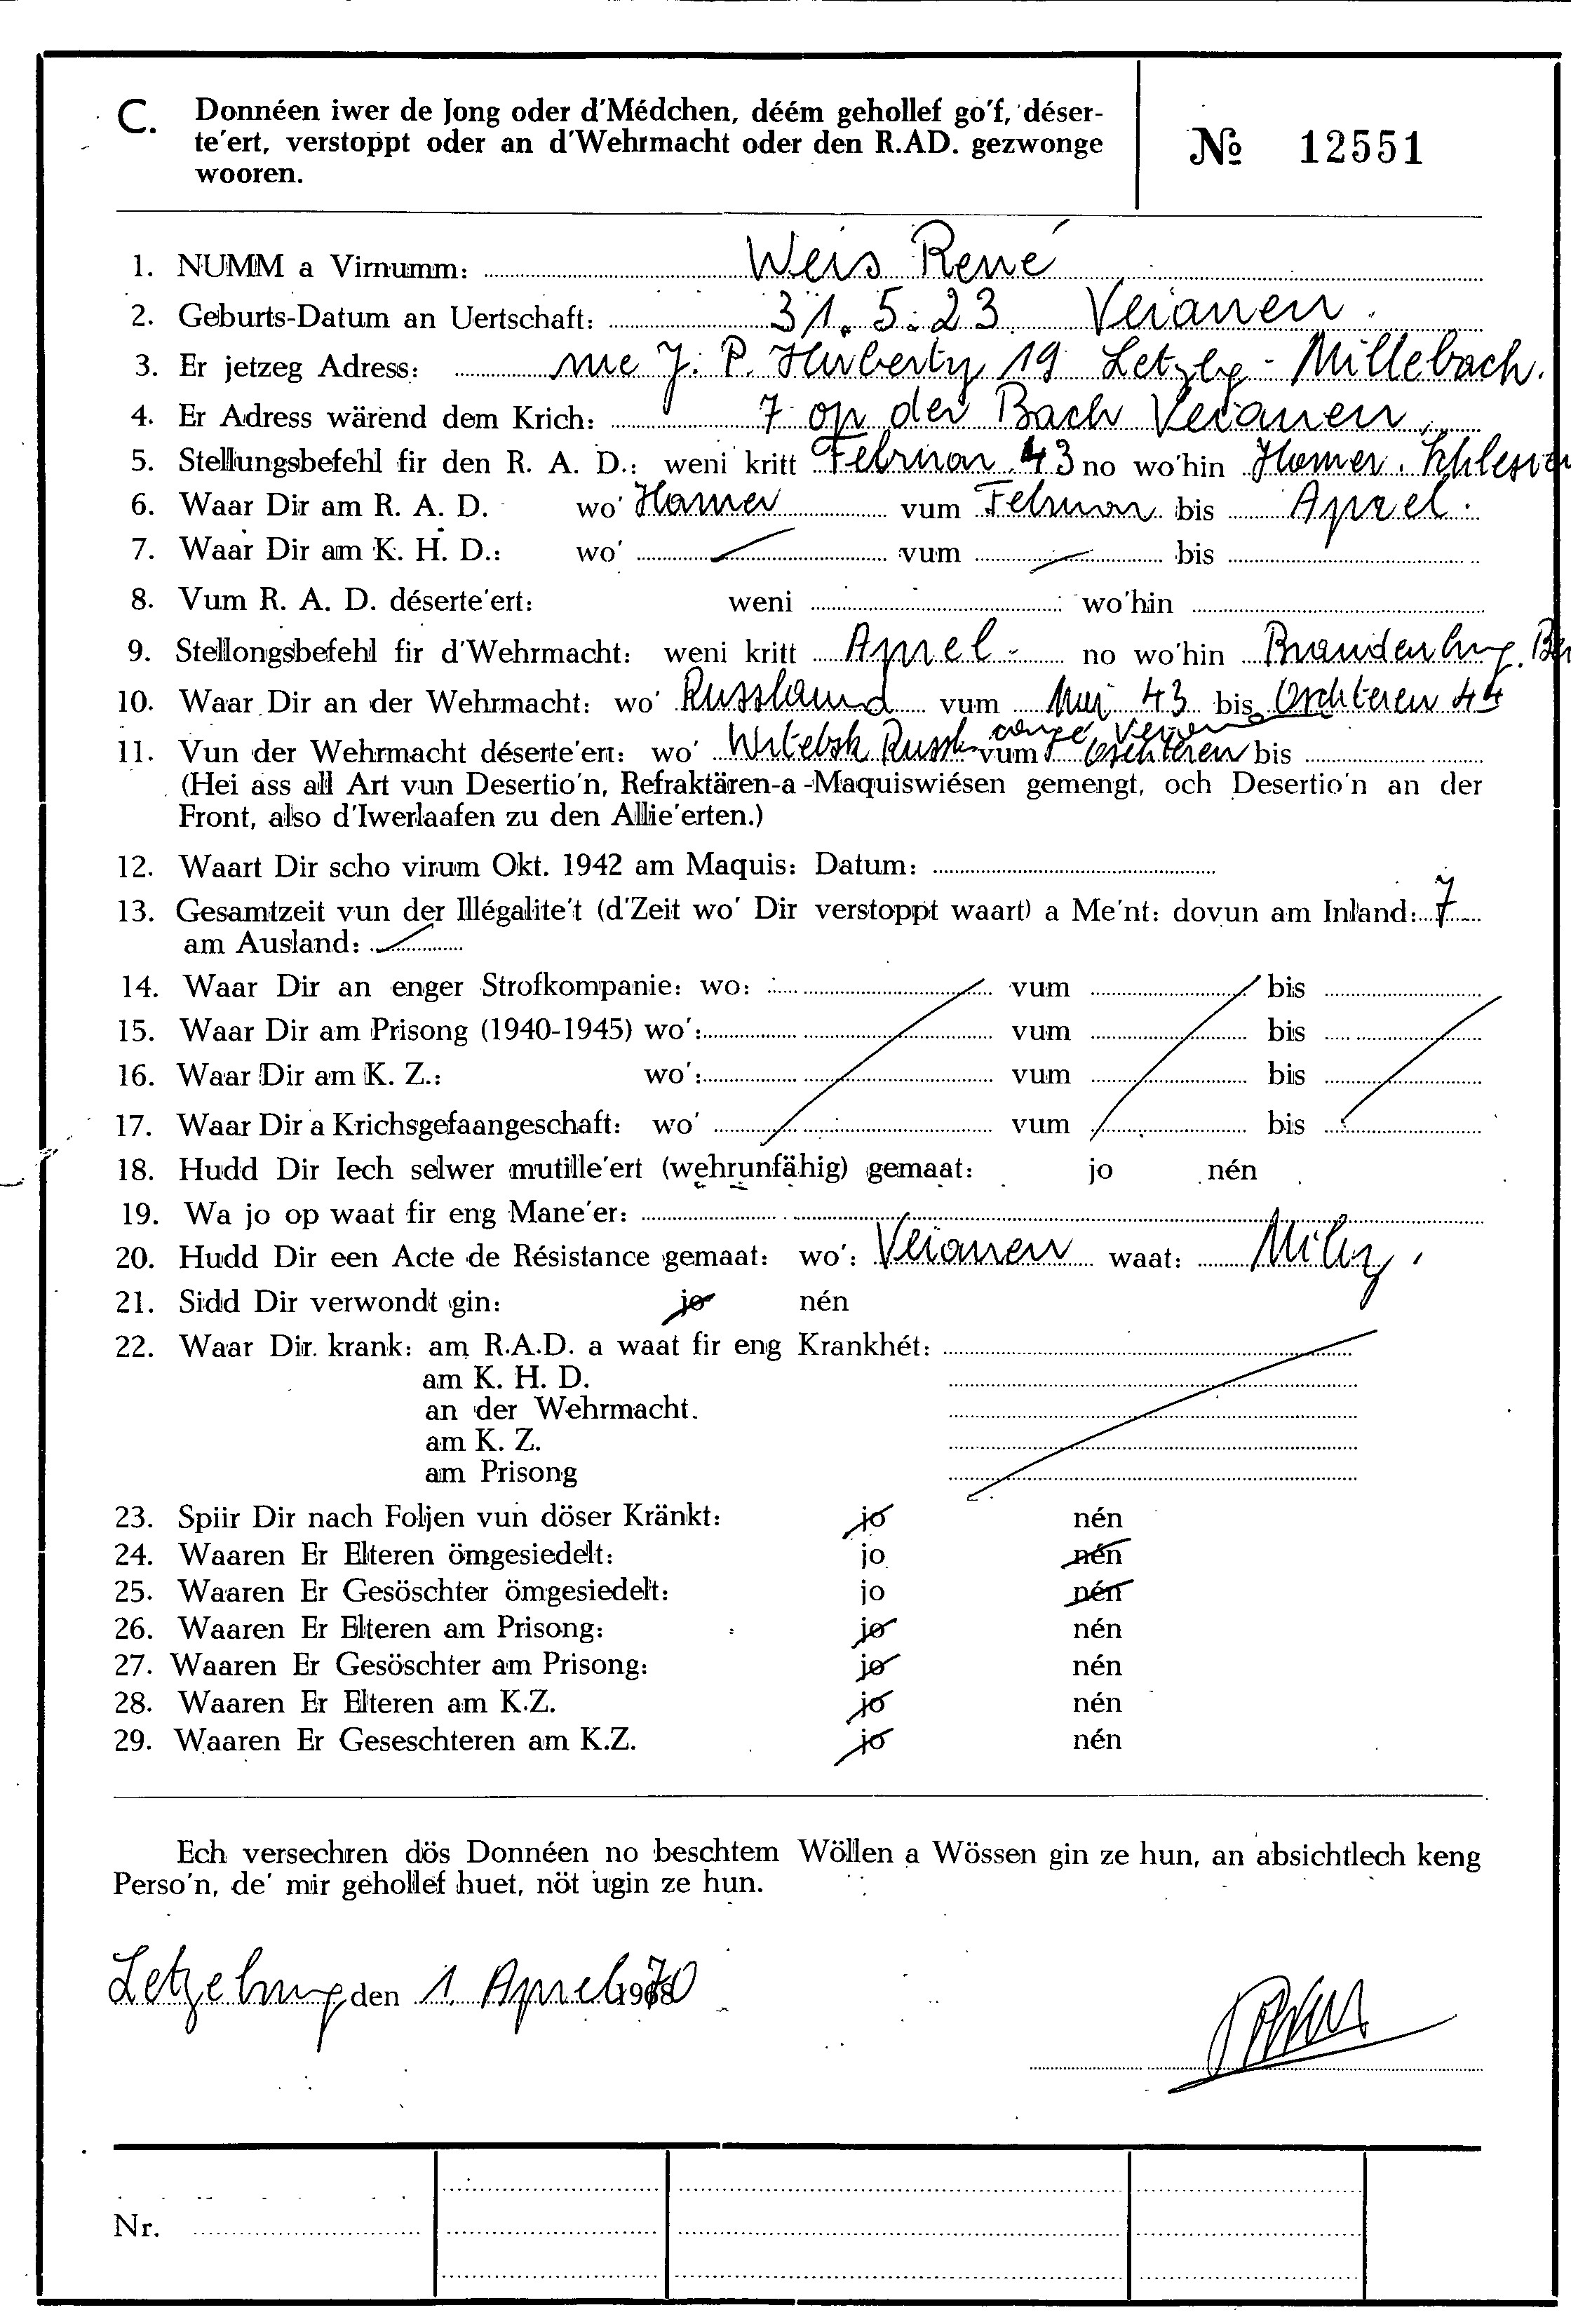 C. Donnéen iwer de Jong oder d'Médchen, déém gehollef go'f, déser-
te'ert, verstoppt oder an d'Wehrmacht oder den R.AD. gezwonge
wooren.
№ 12551
1. NUMM a Virnumm: Weis René
2. Geburts-Datum an Uertschaft: 31.5.23 Veianen.
3. Er jetzeg Adress: rue J. P. Huberty 19 Letzbg - Millebach.
4. Er Adress wärend dem Krich: 7 op der Bach Veianen
5. Stellungsbefehl fir den R. A. D.: weni kritt Februar 43 no wo'hin Hamer. Schlesien
6. Waar Dir am R. A. D. wo' Hamer vum Februar bis Aprel.
7. Waar Dir am K. H. D.: wo' vum bis
8. Vum R. A. D. déserte'ert: weni wo'hin
9. Stellongsbefehl fir d'Wehrmacht: weni kritt Aprel - no wo'hin Brandenburg. Ber
10. Waar Dir an der Wehrmacht: wo' Russland vum Mai 43 bis Oschteren 44
congé Veianen
11. Vun der Wehrmacht déserte'ert: wo' Witebsk Russl. vum Oschteren bis
(Hei ass all Art vun Desertio'n, Refraktären-a-Maquiswiésen gemengt, och Desertio'n an der
Front, also d'Iwerlaafen zu den Allie'erten.)
12. Waart Dir scho virum Okt. 1942 am Maquis: Datum:
13. Gesamtzeit vun der Illégalite't (d'Zeit wo' Dir verstoppt waart) a Me'nt: dovun am Inland: 7
am Ausland:
14. Waar Dir an enger Strofkompanie: wo: vum bis
15. Waar Dir am Prisong (1940-1945) wo': vum bis
16. Waar Dir am K. Z.: wo': vum bis
17. Waar Dir a Krichsgefaangeschaft: wo' vum bis
18. Hudd Dir Iech selwer mutille'ert (wehrunfähig) gemaat: jo nén
19. Wa jo op waat fir eng Mane'er:
20. Hudd Dir een Acte de Résistance gemaat: wo': Veianen waat: Miliz.
21. Sidd Dir verwondt gin: jo nén
22. Waar Dir. krank: am R.A.D. a waat fir eng Krankhét:
am K. H. D.
an der Wehrmacht.
am K. Z.
am Prisong
23. Spiir Dir nach Foljen vun döser Kränkt: jo nén
24. Waaren Er Elteren ömgesiedelt: jo nén
25. Waaren Er Gesöschter ömgesiedelt: jo nén
26. Waaren Er Elteren am Prisong: jo nén
27. Waaren Er Gesöschter am Prisong: jo nén
28. Waaren Er Elteren am K.Z. jo nén
29. Waaren Er Geseschteren am K.Z. jo nén
Ech versechren dös Donnéen no beschtem Wöllen a Wössen gin ze hun, an absichtlech keng
Perso'n, de' mir gehollef huet, nöt ugin ze hun.
Letzeburg den 1. Aprel 1970
Nr.